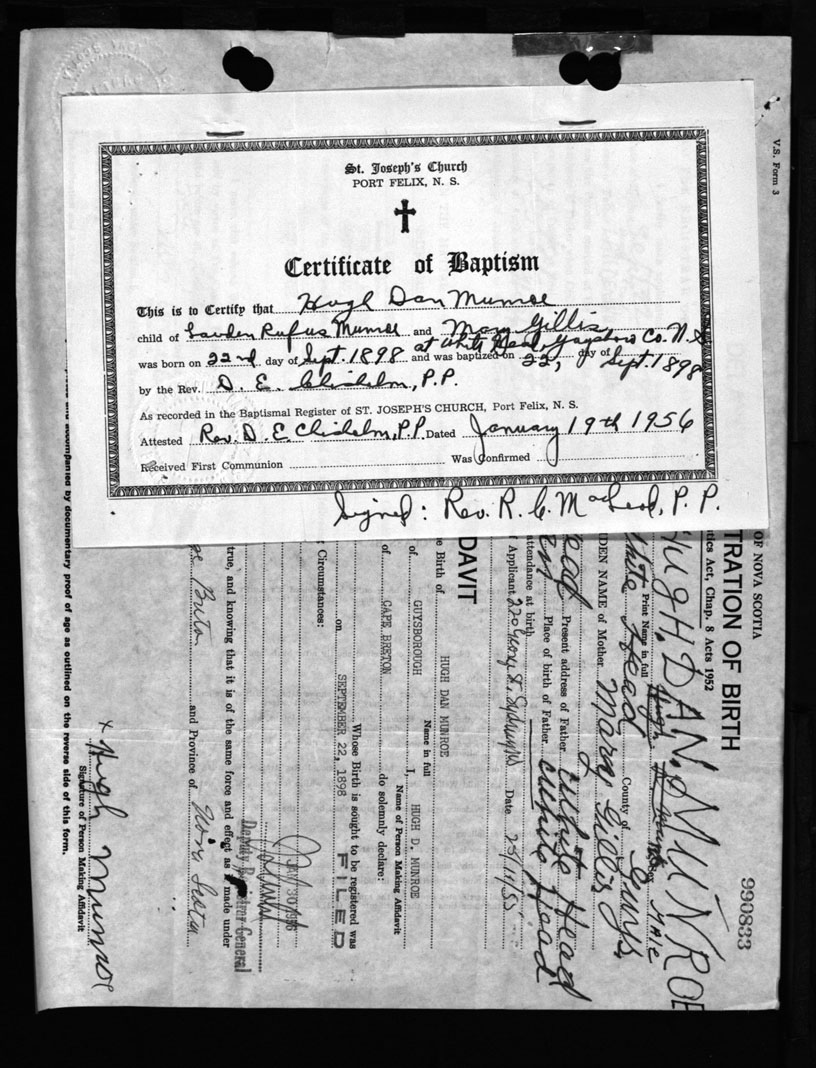 St. Joseph's Church
PORT FELIX, N. S.
Certificate of Baptism
This is to Certify that Hugh Dan Munroe
child of Rufus Munroe and Mary Gillis
at White Head, Guysboro Co. N. S.
was born on 22nd day of Sept. 1898 and was baptized on 22, day of Sept. 1898
by the Rev. D. E. Chisholm, P.P.
As recorded in the Baptismal Register of ST. JOSEPH'S CHURCH, Port Felix, N. S.
Attested Rev. D. E. Chisholm, P.P. Dated January 19th 1956
Received First Communion Was Confirmed
Signed: Rev. R. C. MacLeod, P. P.
V.S. Form 3
OF NOVA SCOTIA
990833
TRATION OF BIRTH
tics Act, Chap. 8 Acts 1952
HUGH. DAN. MUNROE
Print Name in full
Male
White Head County of Guys.
DEN NAME of Mother Mary Gillis
ead Present address of Father White Head
Place of birth of Father White Head
ttendance at birth
Applicant 220 George St. Sydney NS Date 25/11/55
DAVIT
e Birth of HUGH DAN MUNROE
Name in full
of GUYSBOROUGH I, HUGH D. MUNROE
Name of Person Making Affidavit
of CAPE BRETON do solemnly declare:
Whose Birth is sought to be registered was
on SEPTEMBER 22, 1898 FILED
: Circumstances:
JAN 30 1956
Deputy Registrar General
true, and knowing that it is of the same force and effect as if made under
pe Breton and Province of Nova Scotia
x Hugh Munroe
Signature of Person Making Affidavit
and accompanied by documentary proof of age as outlined on the reverse side of this form.